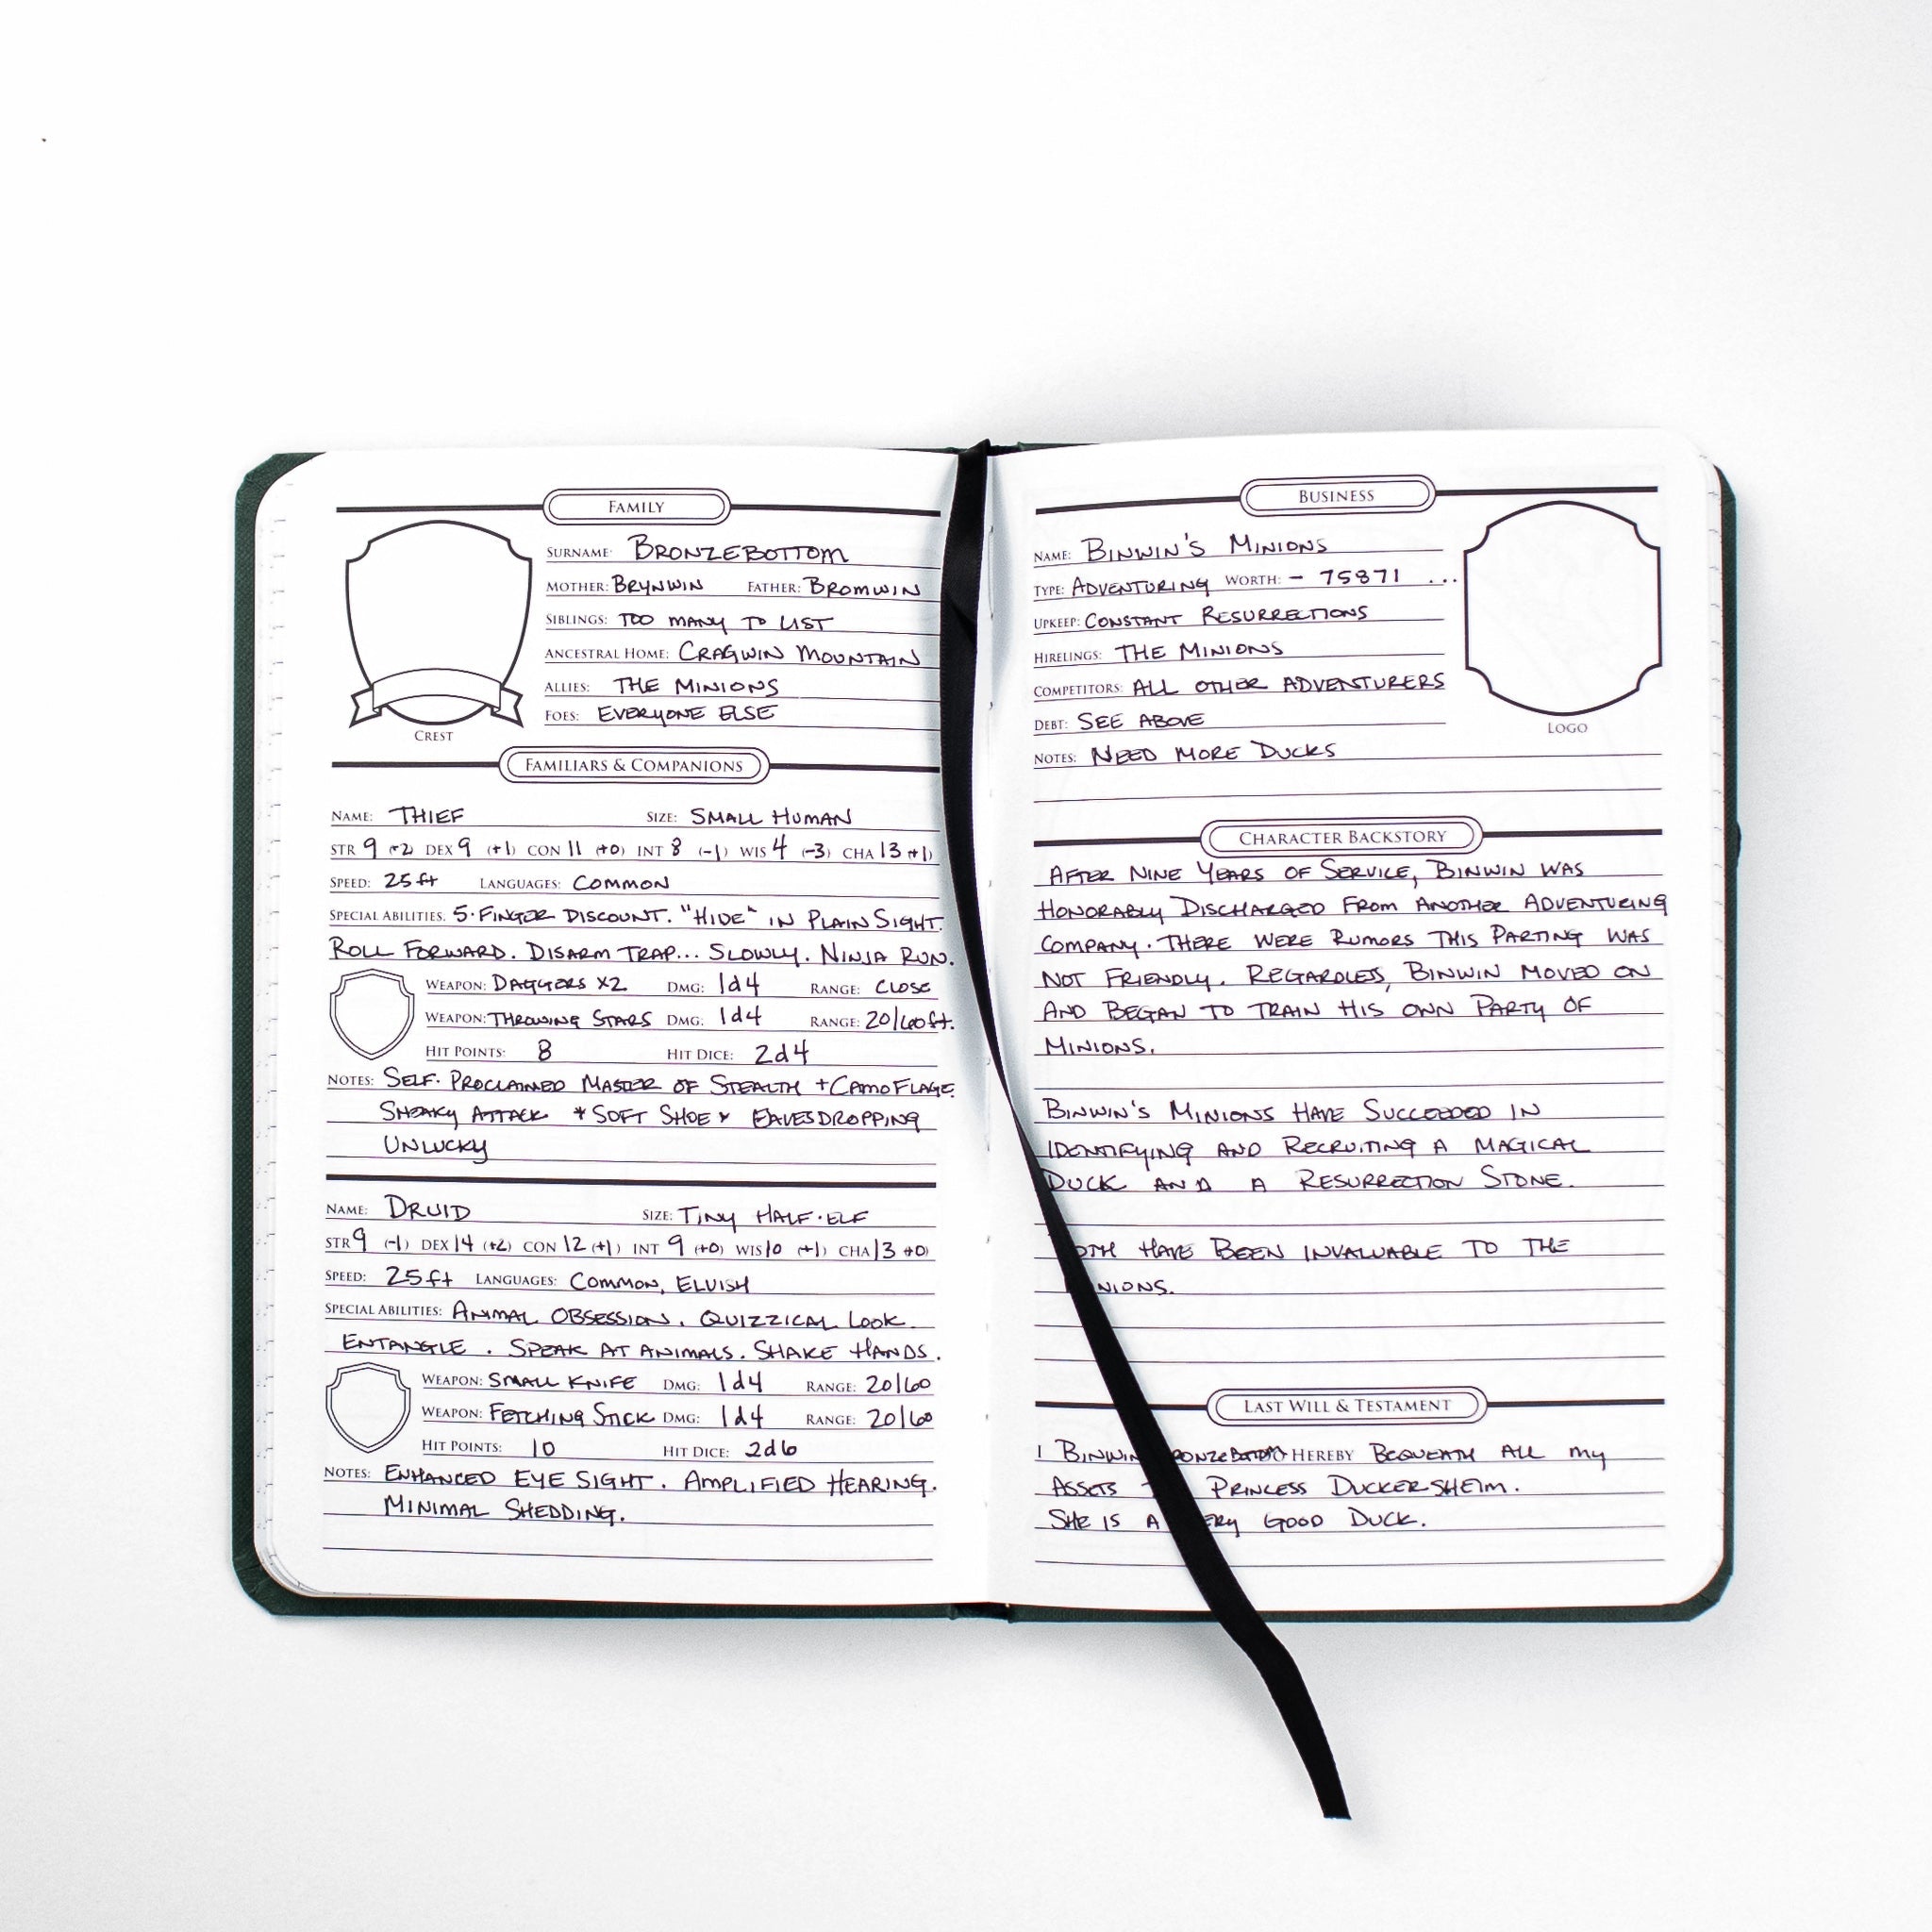 FAMILY
SURNAME: BRONZEBOTTOM
MOTHER: BRYNWIN FATHER: BROMWIN
SIBLINGS: TOO MANY TO LIST
ANCESTRAL HOME: CRAGWIN MOUNTAIN
ALLIES: THE MINIONS
FOES: EVERYONE ELSE
CREST
FAMILIARS & COMPANIONS
NAME: THIEF SIZE: SMALL HUMAN
STR 9 (+2) DEX 9 (+1) CON 11 (+0) INT 8 (-1) WIS 4 (-3) CHA 13 (+1)
SPEED: 25ft LANGUAGES: COMMON
SPECIAL ABILITIES: 5-FINGER DISCOUNT. "HIDE" IN PLAIN SIGHT.
ROLL FORWARD. DISARM TRAP... SLOWLY. NINJA RUN.
WEAPON: DAGGERS X2 DMG: 1d4 RANGE: CLOSE
WEAPON: THROWING STARS DMG: 1d4 RANGE: 20/60ft.
HIT POINTS: 8 HIT DICE: 2d4
NOTES: SELF-PROCLAIMED MASTER OF STEALTH + CAMOFLAGE.
SNEAKY ATTACK * SOFT SHOE * EAVESDROPPING
UNLUCKY
NAME: DRUID SIZE: TINY HALF-ELF
STR 9 (-1) DEX 14 (+2) CON 12 (+1) INT 9 (+0) WIS 10 (+1) CHA 13 (+0)
SPEED: 25ft LANGUAGES: COMMON, ELVISH
SPECIAL ABILITIES: ANIMAL OBSESSION. QUIZZICAL LOOK.
ENTANGLE. SPEAK AT ANIMALS. SHAKE HANDS.
WEAPON: SMALL KNIFE DMG: 1d4 RANGE: 20/60
WEAPON: FETCHING STICK DMG: 1d4 RANGE: 20/60
HIT POINTS: 10 HIT DICE: 2d6
NOTES: ENHANCED EYE SIGHT. AMPLIFIED HEARING.
MINIMAL SHEDDING.
BUSINESS
NAME: BINWIN'S MINIONS
TYPE: ADVENTURING WORTH: - 75871 ...
UPKEEP: CONSTANT RESURRECTIONS
HIRELINGS: THE MINIONS
COMPETITORS: ALL OTHER ADVENTURERS
DEBT: SEE ABOVE
LOGO
NOTES: NEED MORE DUCKS
CHARACTER BACKSTORY
AFTER NINE YEARS OF SERVICE, BINWIN WAS
HONORABLY DISCHARGED FROM ANOTHER ADVENTURING
COMPANY. THERE WERE RUMORS THIS PARTING WAS
NOT FRIENDLY. REGARDLESS, BINWIN MOVED ON
AND BEGAN TO TRAIN HIS OWN PARTY OF
MINIONS.
BINWIN'S MINIONS HAVE SUCCEEDED IN
IDENTIFYING AND RECRUITING A MAGICAL
DUCK AND A RESURRECTION STONE.
OTH HAVE BEEN INVALUABLE TO THE
NIONS.
LAST WILL & TESTAMENT
I BINWIN ONZEBOTTOM HEREBY BEQUEATH ALL MY
ASSETS T PRINCESS DUCKERSHEIM.
SHE IS A ERY GOOD DUCK.